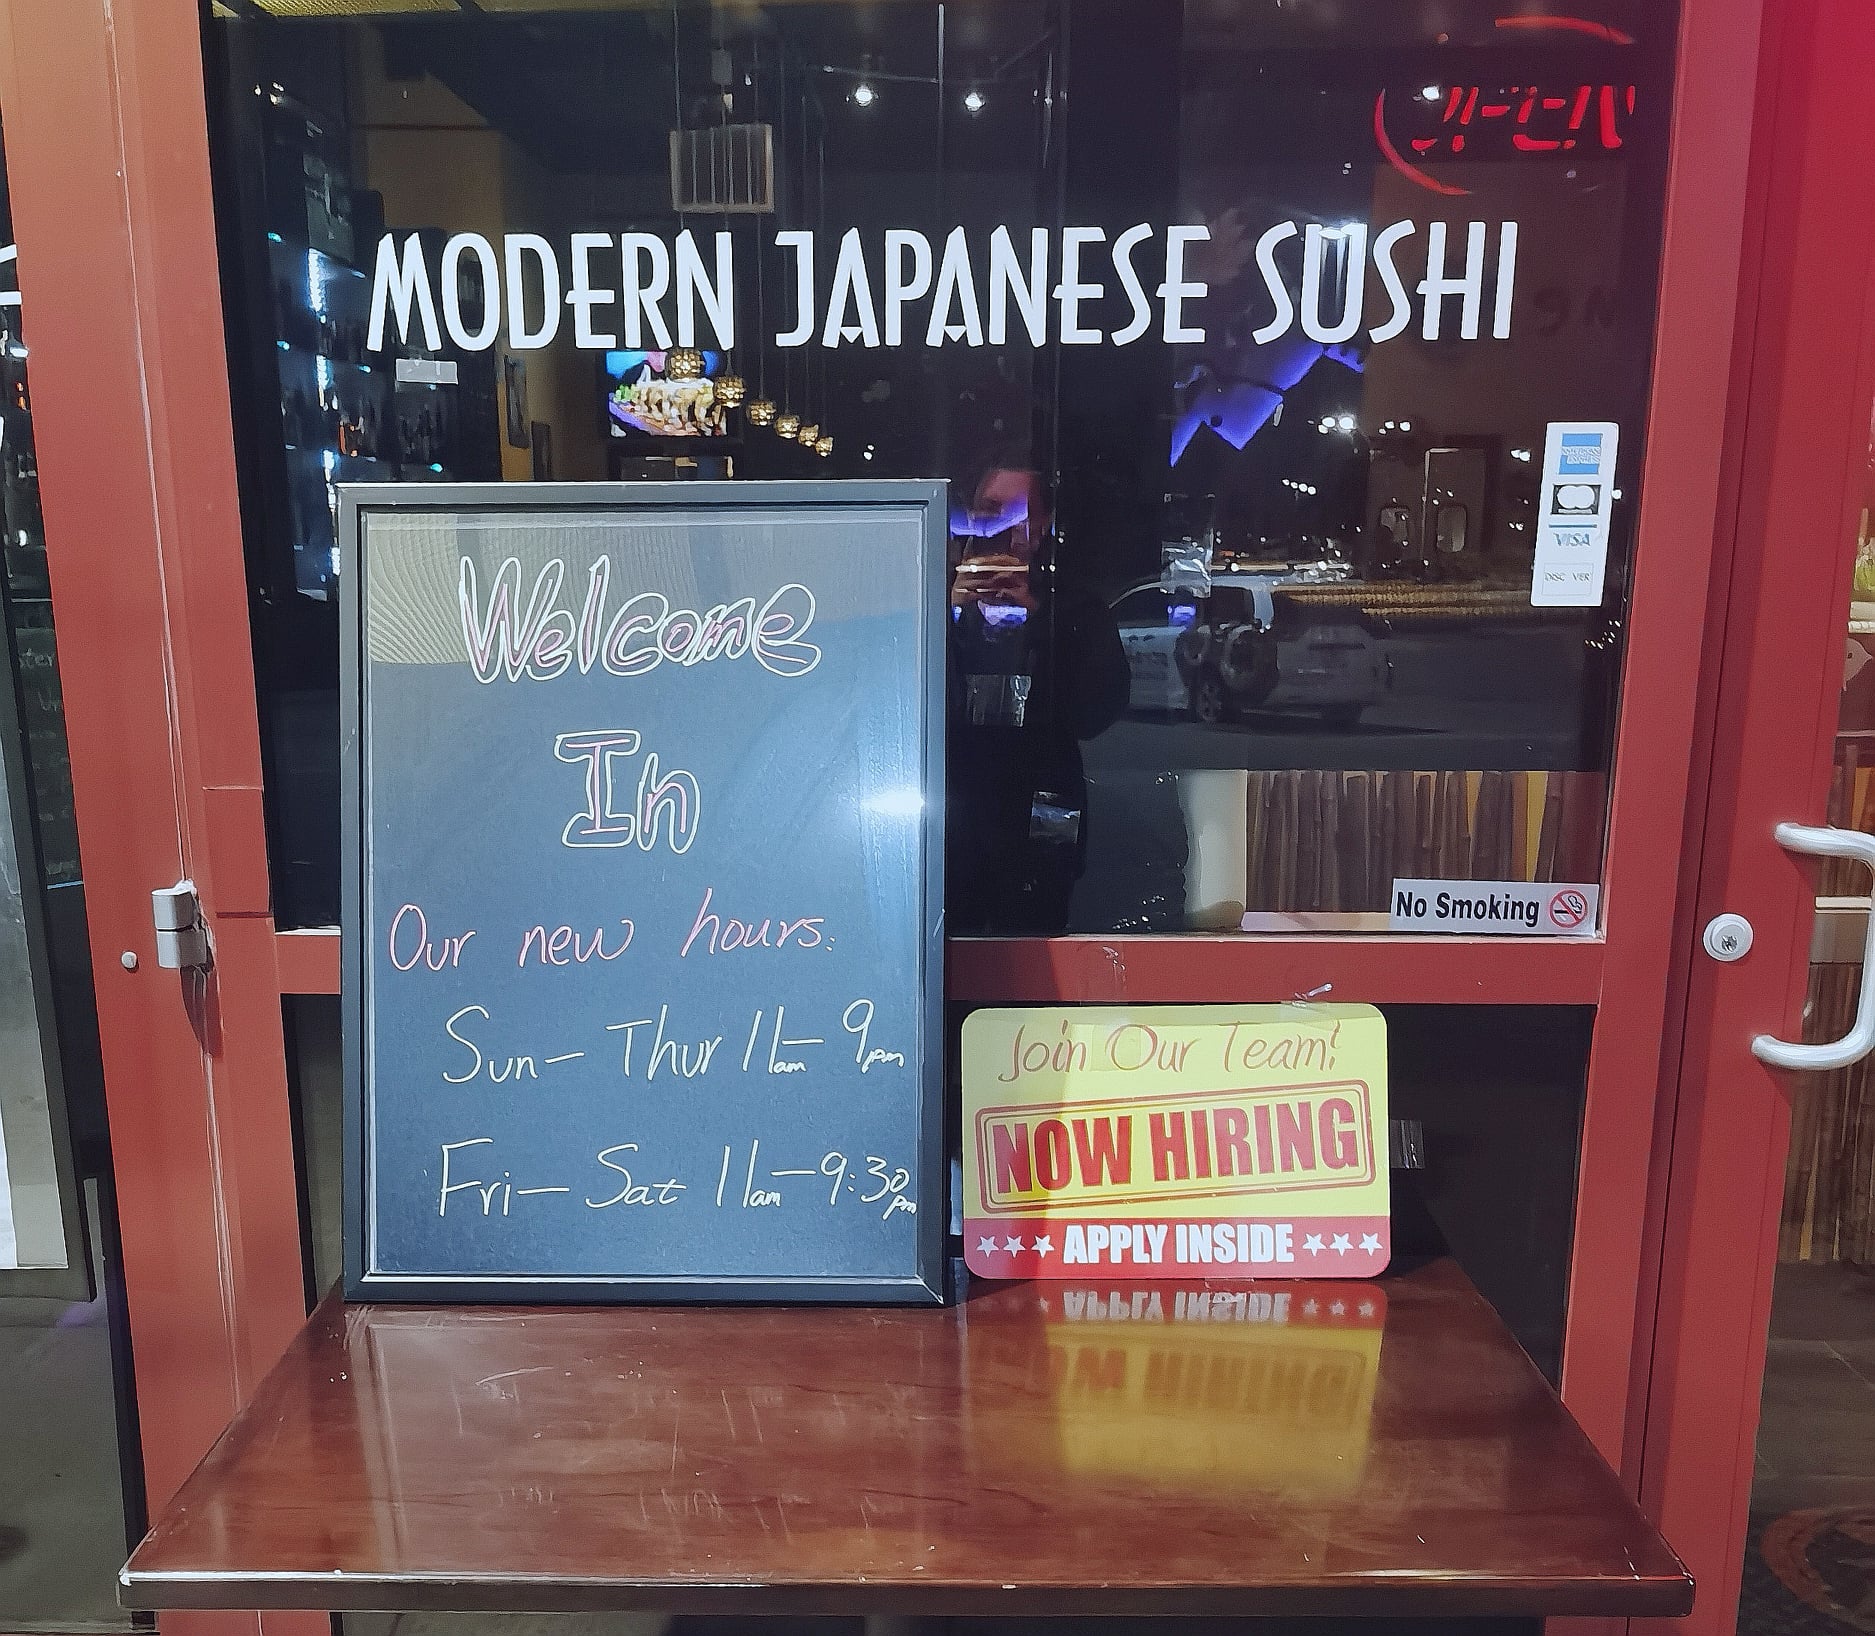 MODERN JAPANESE SUSHI
AMERICAN EXPRESS
VISA
DISC VER
Welcome
In
Our new hours:
Sun- Thur 11am- 9pm
Fri- Sat 11am-9:30pm
No Smoking
Join Our Team!
NOW HIRING
APPLY INSIDE